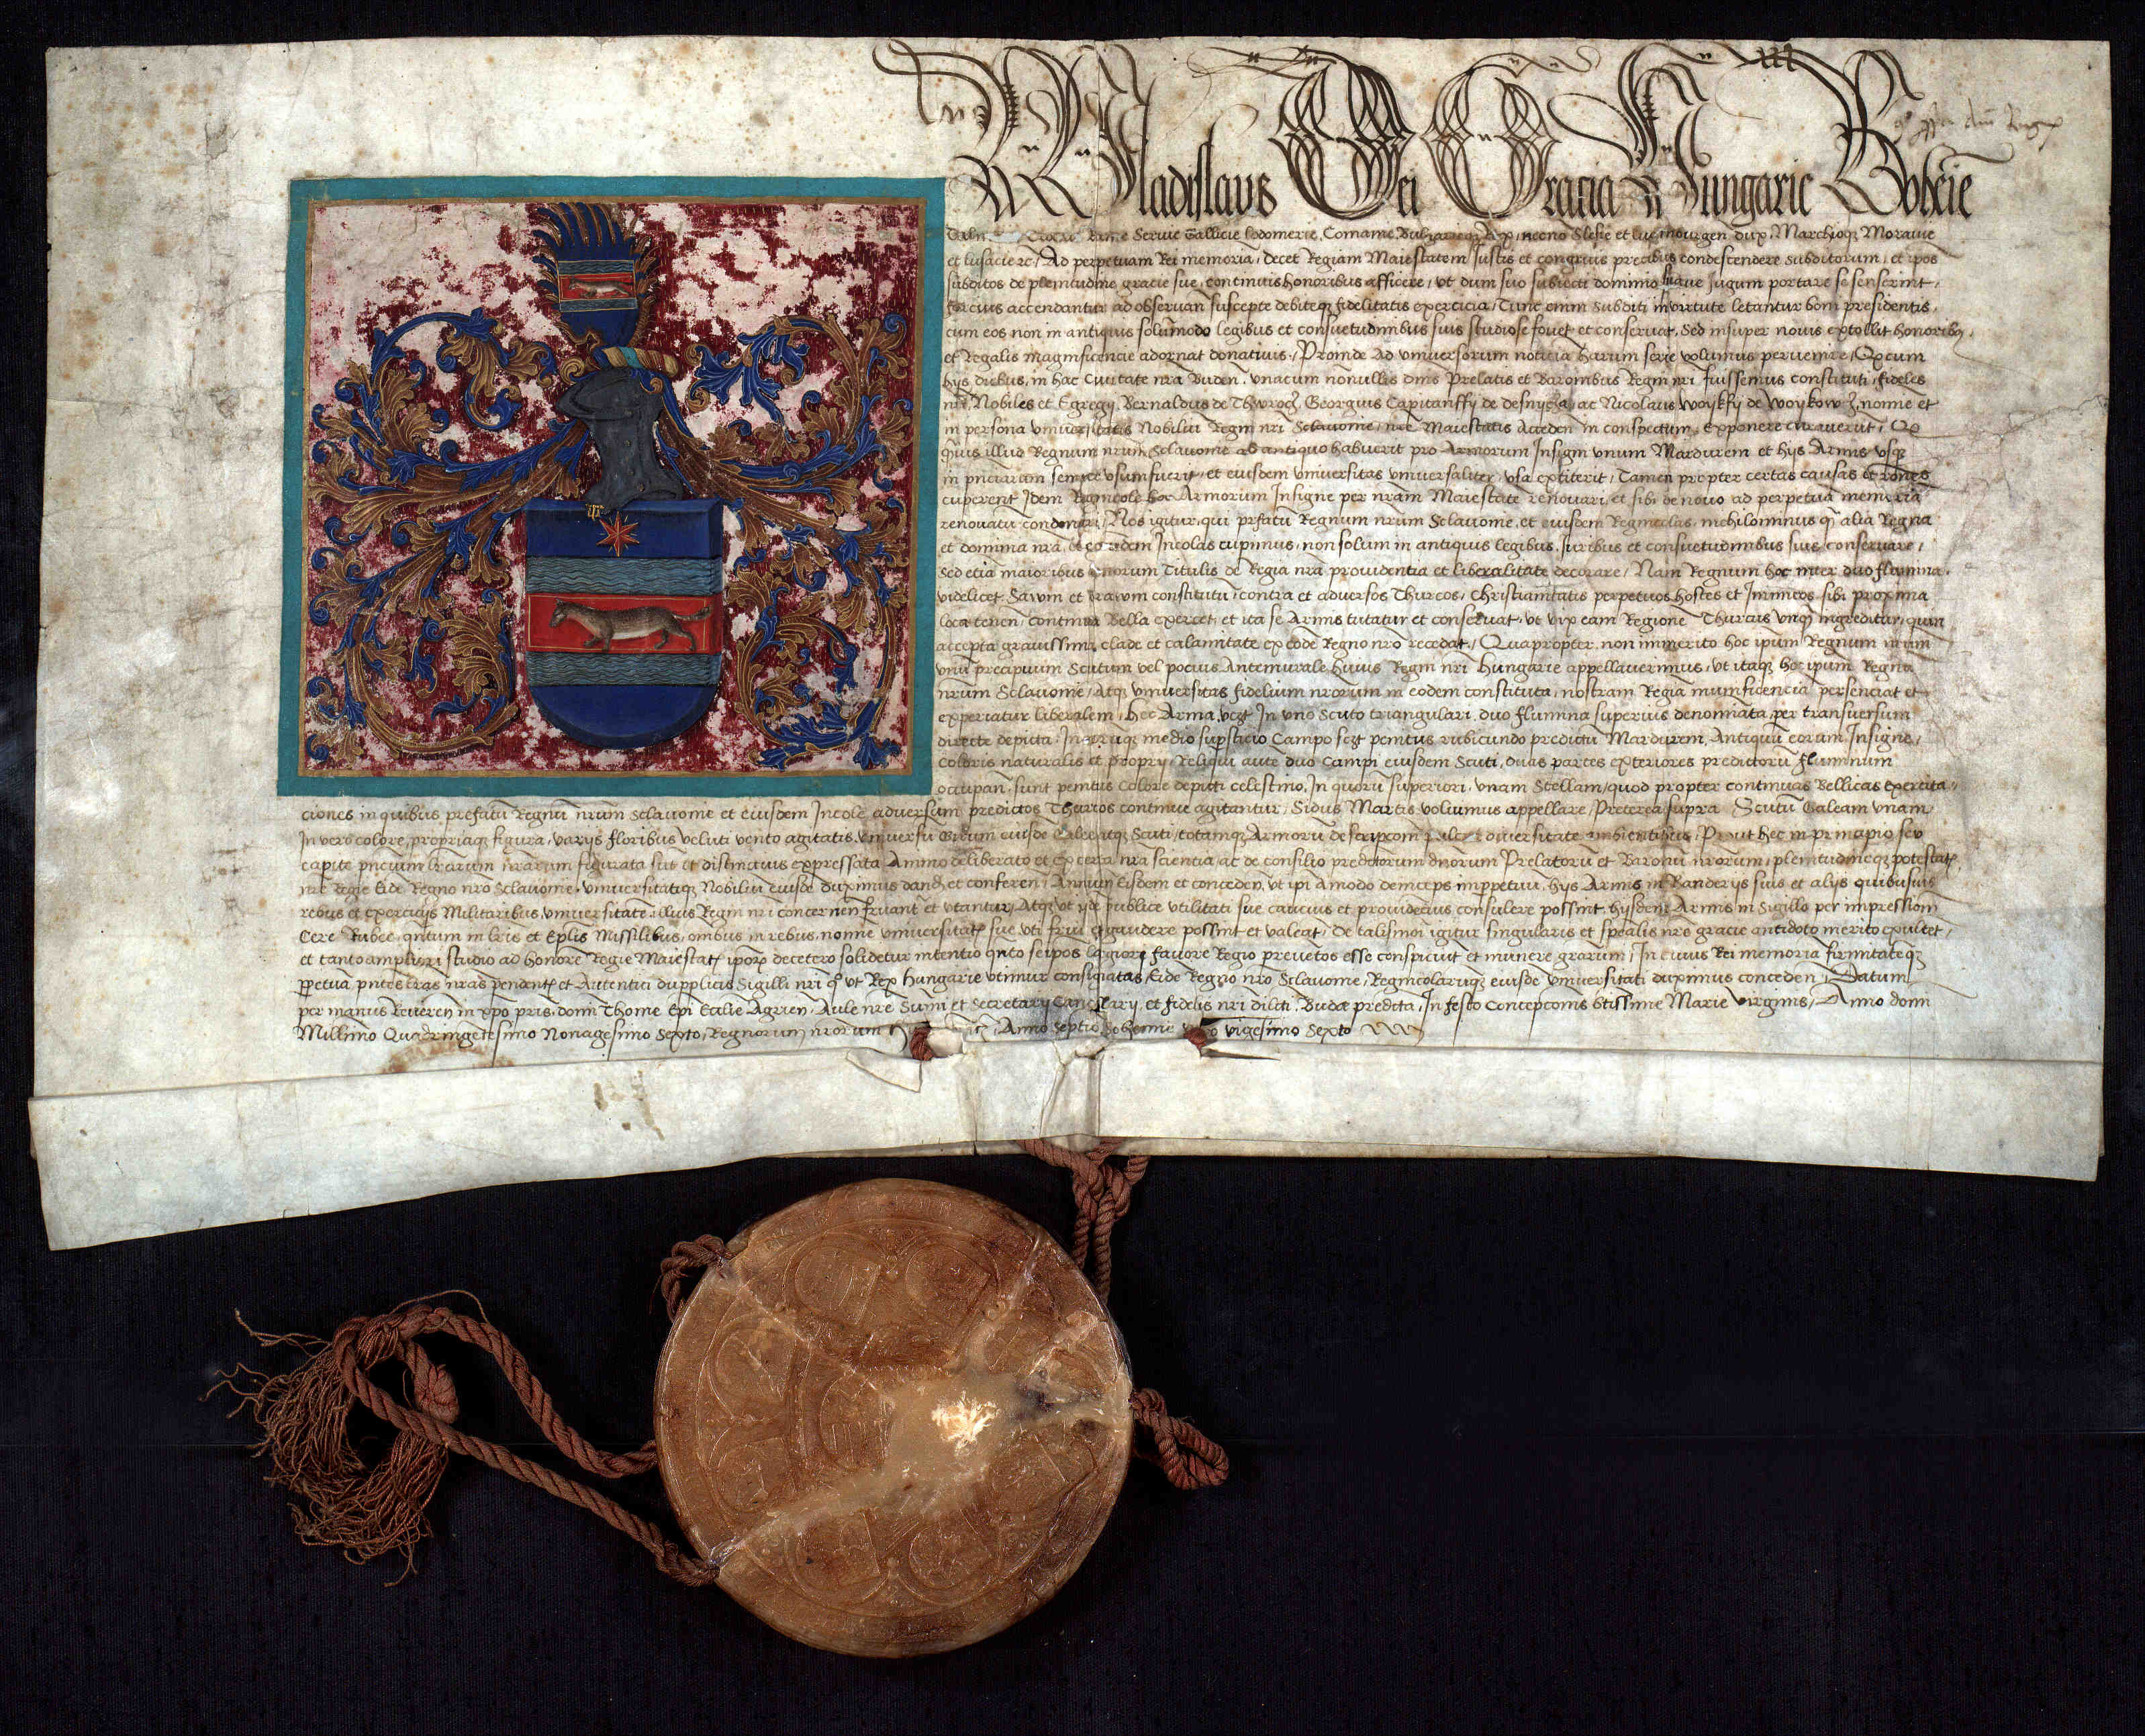 Wladislaus Dei Gracia Hungarie Bohemie
Dalm Croacie Rame Servie Gallicie Lodomerie, Comanie Bulgarieqz Rex, necno Slesie et lucemburgen dux, Marchioqz Moravie
et lusacie zc / Ad perpetuam Rei memoria, decet Regiam Maiestatem Justis et congruis precibus condescendere subditorum, et ipos
subditos de plenitudine gracie sue, continuis honoribus afficere, ut dum suo subiecti dominio suave Jugum portare se senserint,
forcius accendantur ad observan suscepte debiteqz fidelitatis exercicia / Tunc enim Subditi in virtute letantur boni presidentis,
cum eos non in antiquis solumodo legibus et consuetudinibus suis studiose fovet et conservat, Sed insuper novis extollit honoribz,
et Regalis magnificencie adornat donativis / Proinde Ad universorum noticia harum serie volumus pervenire, Qz cum
hijs diebus, in hac Civitate nra Buden. unacum nonullis dnis Prelatis et Baronibus Regni nri fuissemus constituti, fideles
nri, Nobiles et Egregij, Bernaldus de Thwrocz, Georgius Capitanffy de desnycze ac Nicolaus woykffy de woykowcz, nomine et
in persona universitatis Nobiliu Regni nri Sclavonie, nre Maiestatis Acceden in conspectum, Exponere curaverut, Qz
q̄vis illud Regnum nrum Sclavonie ab antiquo habuerit pro Armorum Insigni unum Mardurem et hijs Armis usqz
in pnciarum semper usum fuerit, et eiusdem universitas universaliter usa extiterit, Tamen propter certas causas et rones
cuperent Idem Regnicole hoc Armorum Insigne per nram Maiestate renovari, et sibi de novo ad perpetua memoria
renovatu condonari / Nos igitur, qui prfatu Regnum nrum Sclavonie, et eiusdem Regnicolas, nichilominus q̄ alia Regna
et dominia nra, et eorundem Incolas cupimus, non solum in antiquis legibus, Juribus et consuetudinibus suis conservare,
Sed etia maioribus honorum Titulis de Regia nra providentia et liberalitate decorare, Nam Regnum hoc inter duo flumina.
videlicet Sawm et Drawm constitutu, contra et adversos Thurcos, Christianitatis perpetuos hostes et Inimicos sibi proxima
loca tenen, continua Bella exercet, et ita se Armis tutatur et conservat, ut vix eam Regione Thurcus unq̄ ingreditur, quin
accepta gravissima clade et calamitate ex eode Regno nro recedat, Quapropter, non immerito hoc ipum Regnum nrum
unu precipuum Scutum vel pocius Antemurale huius Regni nri Hungarie appellaverimus, ut itaqz hoc ipum Regnu
nrum Sclavonie, Atqz universitas fidelium nrorum in eodem constituta, nostram Regia munificencia persenciat et
experiatur liberalem, hec Arma, vczt In uno Scuto triangulari, duo flumina superius denominata, per transversum
directe depicta. Inorumqz medio suprstacio Campo sczt penitus rubicundo predictu Mardurem, Antiquu eorum Insigne,
Coloris naturalis et proprij, Reliqui aute duo Campi eiusdem Scuti, duas partes exteriores predictoru fluminum
occupan, sunt penitus colore depicti celestino, In quoru superiori, unam Stellam, quod propter continuas Bellicas exercita-
ciones in quibus prefatu Regnu nrum Sclavonie et eiusdem Incole adversum predictos Thurcos continue agitantur, Sidus Martis volumus appellare, Preterea supra Scutu Galeam unam,
In vero colore, propriaqz figura, varijs floribus veluti vento agitatis, universu Girum eiusde Galee atqz Scuti, totamqz Armoru descripcom pulcre diversitate ambientibus, Prout hec in principio seu
capite pncium lrarum nrarum figurata sut et distinctius expressata, Animo deliberato et ex certa nra scientia, ac de consilio predictorum dnorum Prelatoru et Baronu nrorum, plenitudineqz potestatz
nre Regie Eide Regno nro Sclavonie, universitatiqz Nobiliu eiusde duximus dand et conferen, Annuen Eisdem et conceden, ut ipi amodo deinceps imperpetuu, hijs Armis in Banderijs suis et alijs quibusvis
rebus et exercicijs Militaribus, universitate illius Regni nri concernen fruant et utantur, Atqz ut ijde publice utilitati sue caucius et providecius consulere possint, hijsdem Armis in Sigillo per impressiom
Cere Rubee, qntum in lris et Eplis Missilibus, omibus in rebus, nomie universitatz sue uti frui et gaudere possint et valeat, de talismoi igitur singularis et spealis nre gracie antidoto merito exultet,
et tanto ampliori studio ad honore Regie Maiestatz iporz decetero solidetur intentio qnto se ipos largiore favore Regio prevetos esse conspiciut et munere grarum, In cuius Rei memoria firmitateqz
ppetua pntes lras nras pendentz et Autentici dupplicis Sigilli nri qo ut Rex Hungarie utimur consignatas, Eide Regno nro Sclavonie, Regnicolarumqz eiusde universitati duximus conceden, Datum
per manus Reveren in xpo pris, domi Thome Epi Ecclie Agrien, Aule nre Sumi et Secretarij Cancellarij, et fidelis nri dilcti. Budæ predicta, In festo Concepcionis btissime Marie virginis, Anno domi
Millimo Quadringetesimo Nonagesimo Sexto, Regnorum nrorum Hungarie zc, Anno Septio Bohemie vero vigesimo Sexto